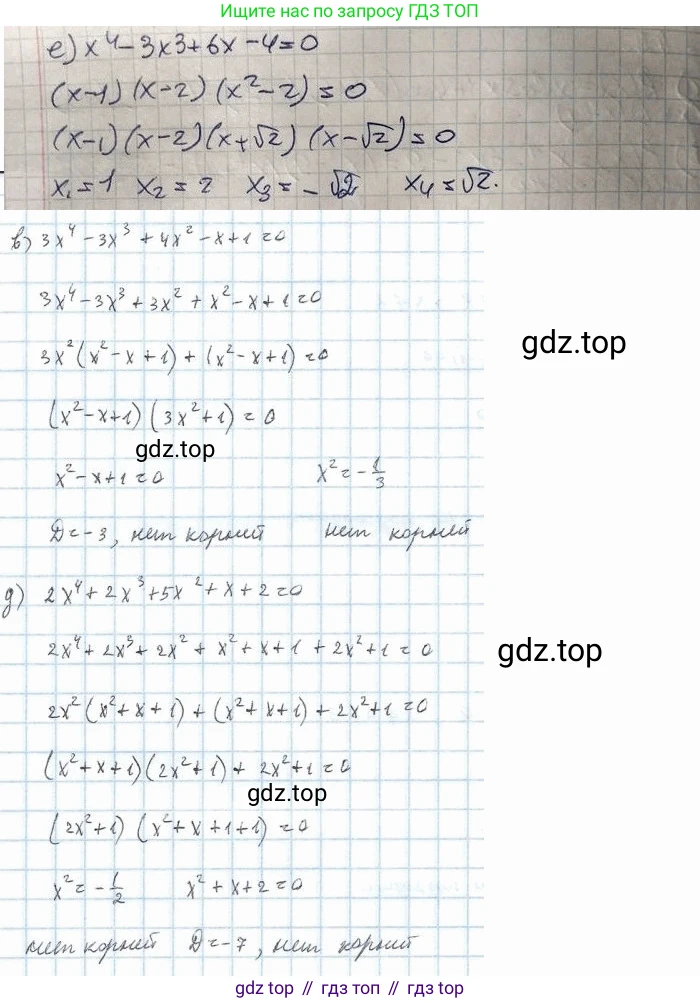 Ищите нас по запросу ГДЗ ТОП
е) x⁴-3x3+6x-4=0
(x-1)(x-2)(x²-2)=0
(x-1)(x-2)(x+√2)(x-√2)=0
x₁=1 x₂=2 x₃=-√2 x₄=√2.
в) 3x⁴-3x³+4x²-x+1=0
3x⁴-3x³+3x²+x²-x+1=0
gdz.top
3x²(x²-x+1)+(x²-x+1)=0
(x²-x+1)(3x²+1)=0
gdz.top
x²-x+1=0 x²=-1/3
D=-3, нет корней нет корней
д) 2x⁴+2x³+5x²+x+2=0
2x⁴+2x³+2x²+x²+x+1+2x²+1=0
gdz.top
2x²(x²+x+1)+(x²+x+1)+2x²+1=0
(x²+x+1)(2x²+1)+2x²+1=0
gdz.top
(2x²+1)(x²+x+1+1)=0
x²=-1/2 x²+x+2=0
нет корней D=-7, нет корней
gdz.top // гдз.топ // гдз топ